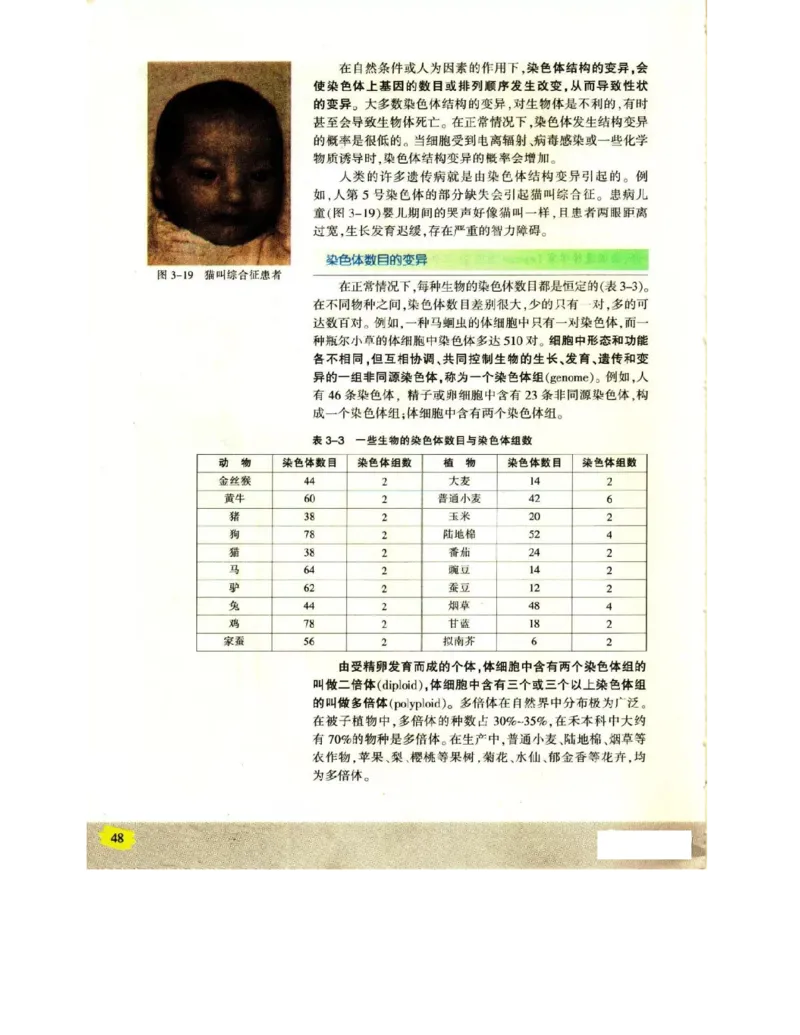 在自然条件或人为因素的作用下,染色体结构的变异,会
使染色体上基因的数目或排列顺序发生改变,从而导致性状
的变异。大多数染色体结构的变异,对生物体是不利的,有时
甚至会导致生物体死亡。在正常情况下,染色体发生结构变异
的概率是很低的。当细胞受到电离辐射、病毒感染或一些化学
物质诱导时,染色体结构变异的概率会增加。
人类的许多遗传病就是由染色体结构变异引起的。例
如,人第 5 号染色体的部分缺失会引起猫叫综合征。患病儿
童(图 3-19)婴儿期间的哭声好像猫叫一样,且患者两眼距离
过宽,生长发育迟缓,存在严重的智力障碍。
图 3-19 猫叫综合征患者
染色体数目的变异
在正常情况下,每种生物的染色体数目都是恒定的(表 3-3)。
在不同物种之间,染色体数目差别很大,少的只有一对,多的可
达数百对。例如,一种马蛔虫的体细胞中只有一对染色体,而一
种瓶尔小草的体细胞中染色体多达 510 对。细胞中形态和功能
各不相同,但互相协调、共同控制生物的生长、发育、遗传和变
异的一组非同源染色体,称为一个染色体组(genome)。例如,人
有 46 条染色体, 精子或卵细胞中含有 23 条非同源染色体,构
成一个染色体组;体细胞中含有两个染色体组。
表 3-3 一些生物的染色体数目与染色体组数
动 物 染色体数目 染色体组数 植 物 染色体数目 染色体组数
金丝猴 44 2 大麦 14 2
黄牛 60 2 普通小麦 42 6
猪 38 2 玉米 20 2
狗 78 2 陆地棉 52 4
猫 38 2 番茄 24 2
马 64 2 豌豆 14 2
驴 62 2 蚕豆 12 2
兔 44 2 烟草 48 4
鸡 78 2 甘蓝 18 2
家蚕 56 2 拟南芥 6 2
由受精卵发育而成的个体,体细胞中含有两个染色体组的
叫做二倍体(diploid),体细胞中含有三个或三个以上染色体组
的叫做多倍体(polyploid)。多倍体在自然界中分布极为广泛。
在被子植物中,多倍体的种数占 30%~35%,在禾本科中大约
有 70%的物种是多倍体。在生产中,普通小麦、陆地棉、烟草等
农作物,苹果、梨、樱桃等果树,菊花、水仙、郁金香等花卉,均
为多倍体。
48